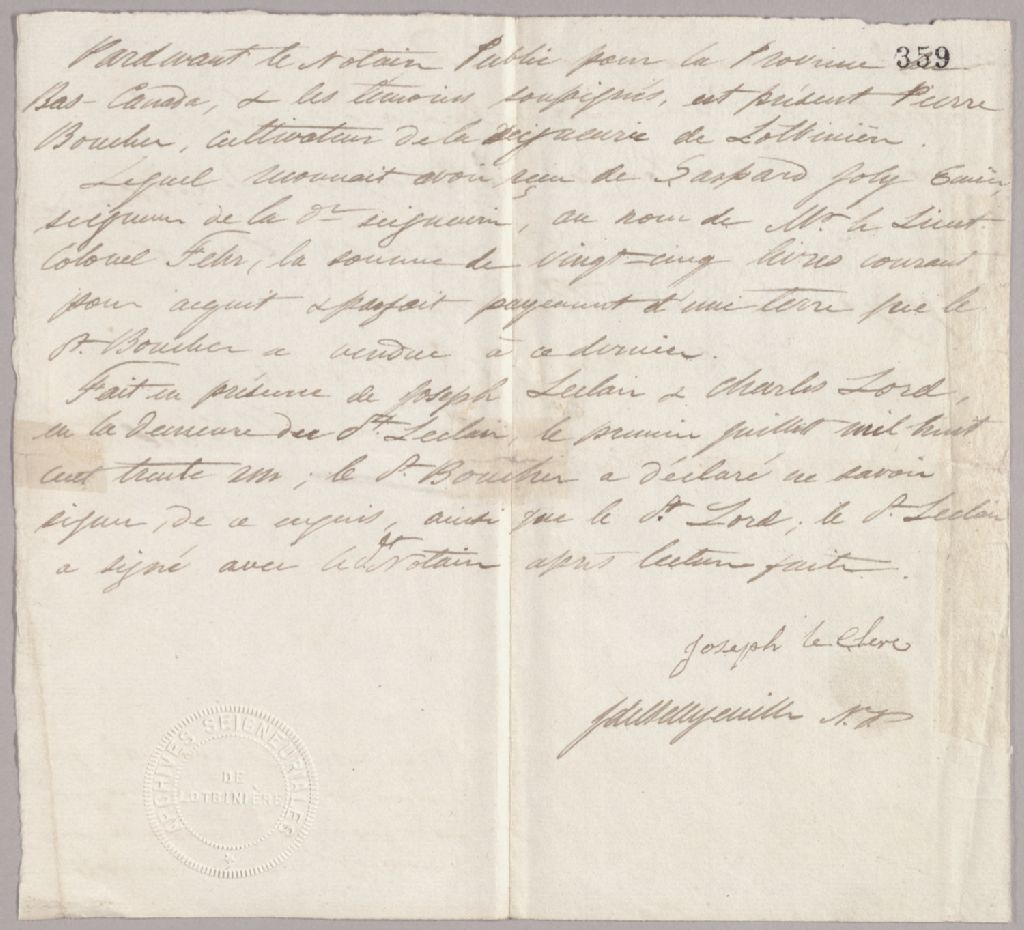 359
Pardevant le Notaire Public pour la Province
Bas-Canada, & les témoins soussignés, est présent Pierre
Boucher, cultivateur de la Seigneurie de Lotbinière.
Lequel reconnait avoir reçu de Gaspard Joly Ecuier,
seigneur de la dte seigneurie, au nom de Mr. le Lieut.
Colonel Fehr, la somme de vingt-cinq livres courant
pour acquit & parfait payement d'une terre que le
Sr. Boucher a vendue à ce dernier.
Fait en présence de Joseph Leclair & Charles Lord,
en la demeure du St. Leclair, le premier juillet mil huit
cent trente un; le Sr. Boucher a déclaré ne savoir
signer, de ce enquis, ainsi que le St. Lord; le Sr. Leclair
a signé avec le dt Notaire après lecture faite.
Joseph le Clere
N.P.
ARCHIVES SEIGNEURIALES
DE
LOTBINIÈRE